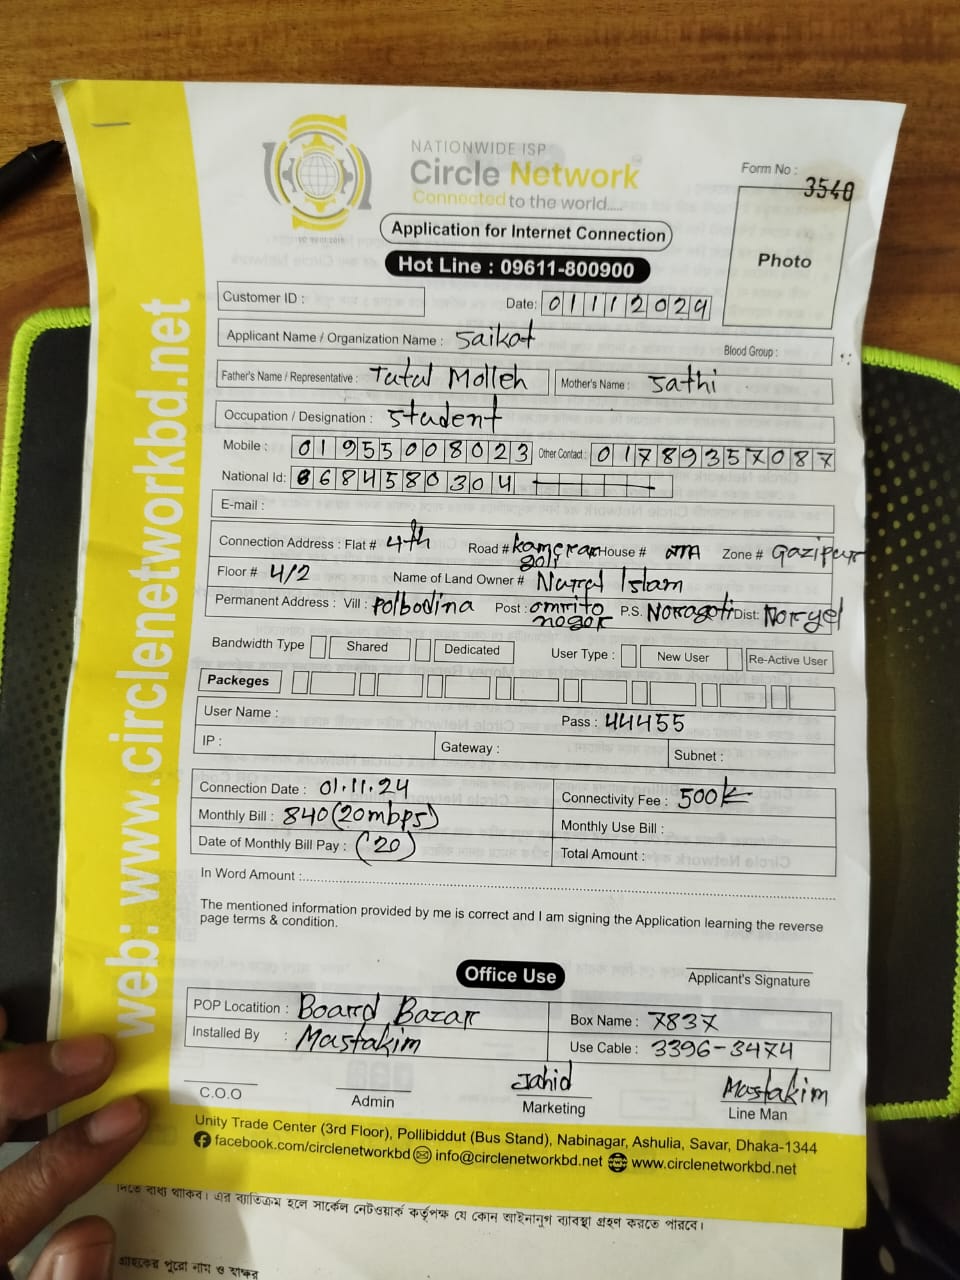 NATIONWIDE ISP
Circle Network
Connected to the world.....
Form No : 3540
Application for Internet Connection
Hot Line : 09611-800900
Photo
Customer ID :
Date: 01112024
Applicant Name / Organization Name : Saikat
Blood Group :
Father's Name / Representative : Tutal Molleh Mother's Name : Sathi
Occupation / Designation : Student
Mobile : 01955008023 Other Contact : 01789357087
National Id: 8684580304
E-mail :
Connection Address : Flat # 4th Road # kameran goli House # N/A Zone # Gazipur
Floor # 4/2 Name of Land Owner # Nurral Islam
Permanent Address : Vill : Polbodina Post : omrito nogor P.S. Norragoti Dist: Norryel
Bandwidth Type Shared Dedicated User Type : New User Re-Active User
Packeges
User Name : Pass : 44455
IP : Gateway : Subnet :
Connection Date : 01.11.24 Connectivity Fee : 500
Monthly Bill : 840 (20mbps) Monthly Use Bill :
Date of Monthly Bill Pay : (20) Total Amount :
In Word Amount :
The mentioned information provided by me is correct and I am signing the Application learning the reverse
page terms & condition.
Office Use
Applicant's Signature
POP Locatition : Board Bazar Box Name : 7837
Installed By : Mastakim Use Cable : 3396-3474
Jahid Mastakim
C.O.O Admin Marketing Line Man
Unity Trade Center (3rd Floor), Pollibiddut (Bus Stand), Nabinagar, Ashulia, Savar, Dhaka-1344
facebook.com/circlenetworkbd info@circlenetworkbd.net www.circlenetworkbd.net
web: www.circlenetworkbd.net
দিতে বাধ্য থাকিব। এর ব্যাতিক্রম হলে সার্কেল নেটওয়ার্ক কর্তৃপক্ষ যে কোন আইনানুগ ব্যাবস্থা গ্রহণ করতে পারবে।
গ্রাহকের পুরো নাম ও স্বাক্ষর